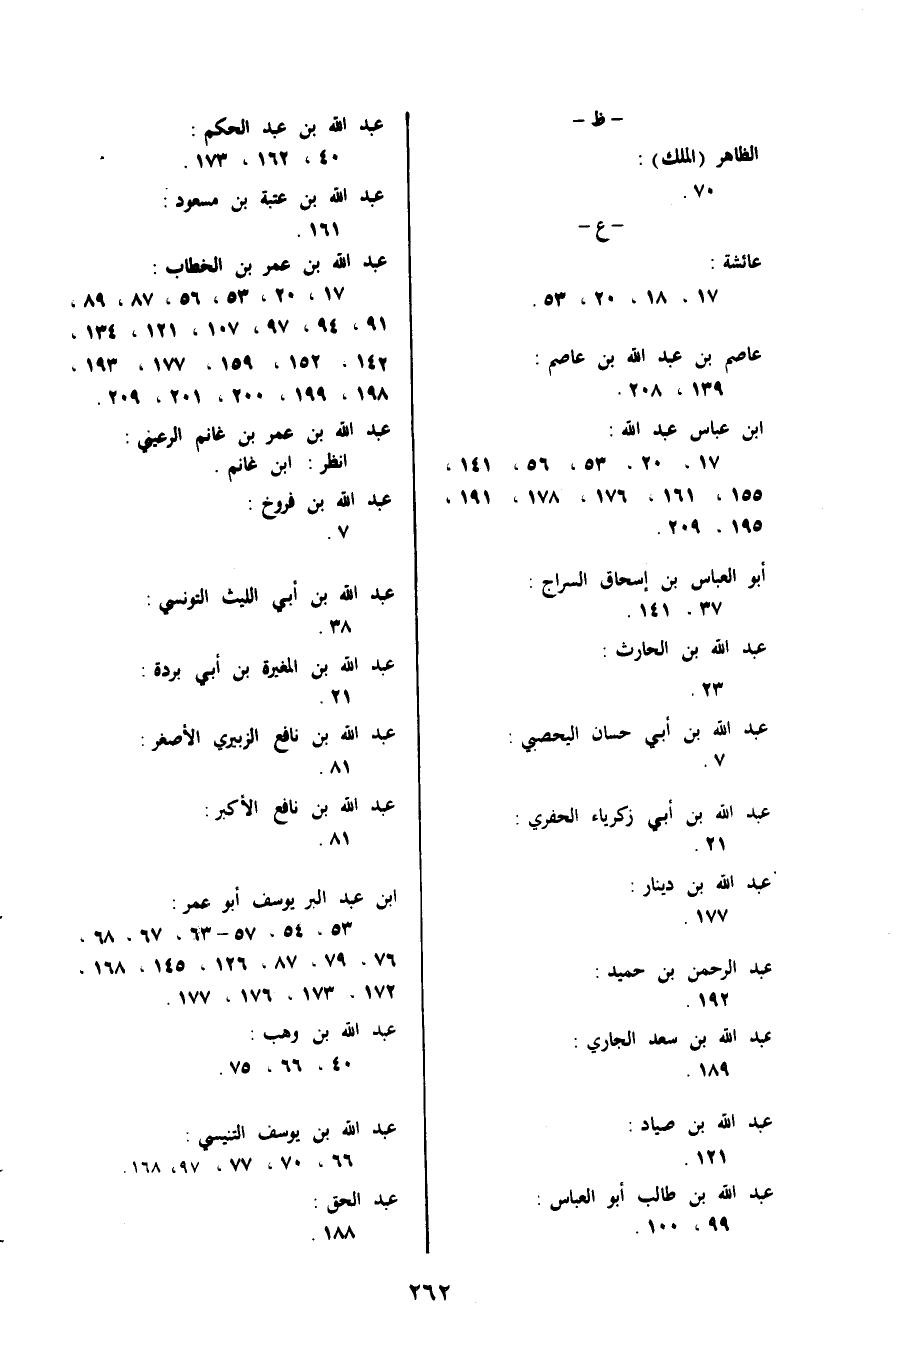 - ظ -
الظاهر (الملك) :
٧٠ .
- ع -
عائشة :
١٧ ، ١٨ ، ٢٠ ، ٥٣ .
عاصم بن عبد الله بن عاصم :
١٣٩ ، ٢٠٨ .
ابن عباس عبد الله :
١٧ ، ٢٠ ، ٥٣ ، ٥٦ ، ١٤١ ،
١٥٥ ، ١٦١ ، ١٧٦ ، ١٧٨ ، ١٩١ ،
١٩٥ ، ٢٠٩ .
أبو العباس بن إسحاق السراج :
٣٧ ، ١٤١ .
عبد الله بن الحارث :
٢٣ .
عبد الله بن أبي حسان اليحصبي :
٧ .
عبد الله بن أبي زكرياء الحفري :
٢١ .
عبد الله بن دينار :
١٧٧ .
عبد الرحمن بن حميد :
١٩٢ .
عبد الله بن سعد الجاري :
١٨٩ .
عبد الله بن صياد :
١٢١ .
عبد الله بن طالب أبو العباس :
٩٩ ، ١٠٠ .
عبد الله بن عبد الحكم :
٤٠ ، ١٦٢ ، ١٧٣ .
عبد الله بن عتبة بن مسعود :
١٦١ .
عبد الله بن عمر بن الخطاب :
١٧ ، ٢٠ ، ٥٣ ، ٥٦ ، ٨٧ ، ٨٩ ،
٩١ ، ٩٤ ، ٩٧ ، ١٠٧ ، ١٢١ ، ١٣٤ ،
١٤٢ ، ١٥٢ ، ١٥٩ ، ١٧٧ ، ١٩٣ ،
١٩٨ ، ١٩٩ ، ٢٠٠ ، ٢٠١ ، ٢٠٩ .
عبد الله بن عمر بن غانم الرعيني :
انظر : ابن غانم .
عبد الله بن فروخ :
٧ .
عبد الله بن أبي الليث التونسي :
٣٨ .
عبد الله بن المغيرة بن أبي بردة :
٢١ .
عبد الله بن نافع الزبيري الأصغر :
٨١ .
عبد الله بن نافع الأكبر :
٨١ .
ابن عبد البر يوسف أبو عمر :
٥٣ ، ٥٤ ، ٥٧ – ٦٣ ، ٦٧ ، ٦٨ ،
٧٦ ، ٧٩ ، ٨٧ ، ١٢٦ ، ١٤٥ ، ١٦٨ ،
١٧٢ ، ١٧٣ ، ١٧٦ ، ١٧٧ .
عبد الله بن وهب :
٤٠ ، ٦٦ ، ٧٥ .
عبد الله بن يوسف التنيسي :
٦٦ ، ٧٠ ، ٧٧ ، ٩٧ ، ١٦٨ .
عبد الحق :
١٨٨ .
٢٦٢